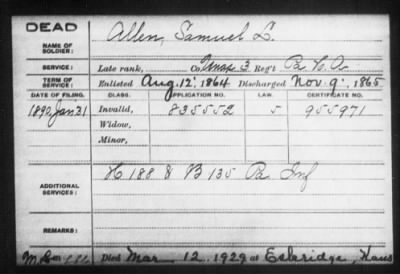 DEAD
NAME OF SOLDIER: Allen, Samuel L.
SERVICE: Late rank, Co. 3 Reg't
TERM OF SERVICE: Enlisted Aug. 12, 1864 Discharged Nov. 9, 1865
DATE OF FILING. CLASS. APPLICATION NO. LAW. CERTIFICATE NO.
1890 Jan 31 Invalid, 835552 5 955971
Widow,
Minor,
ADDITIONAL SERVICES: H 188 & B 135 Pa Inf
REMARKS:
Died Mar 12, 1929 at Eskridge, Kans